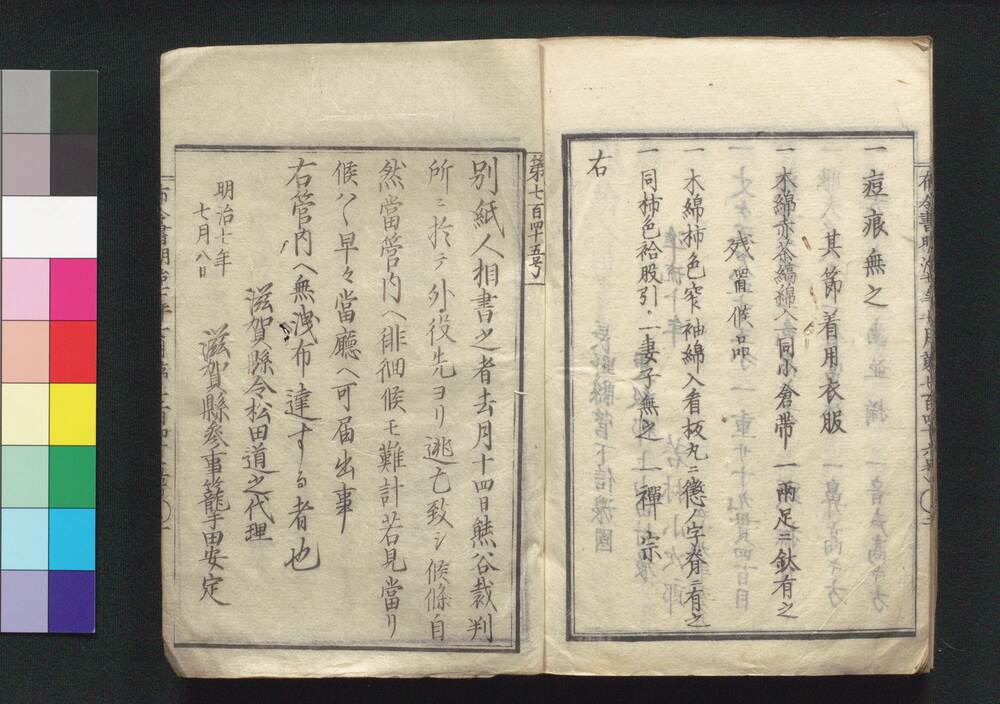 一 痘痕無之
其節着用衣服
一 木綿赤茶縞綿入 一同小倉帶 一両足ニ鈦有之
殘置候品
一 木綿柿色窄袖綿入看板丸ニ懲ノ字脊ニ有之
一 同柿色袷股引 一妻子無之 一禪宗
右
第七百四十五号
別紙人相書之者去月十四日熊谷裁判
所ニ於テ外役先ヨリ逃亡致シ候條自
然當管内ヘ徘徊候モ難計若見當リ
候ハヽ早々當廳ヘ可届出事
右管内ヘ無洩布達する者也
滋賀縣令松田道之代理
明治七年
七月八日
滋賀縣參事籠手田安定